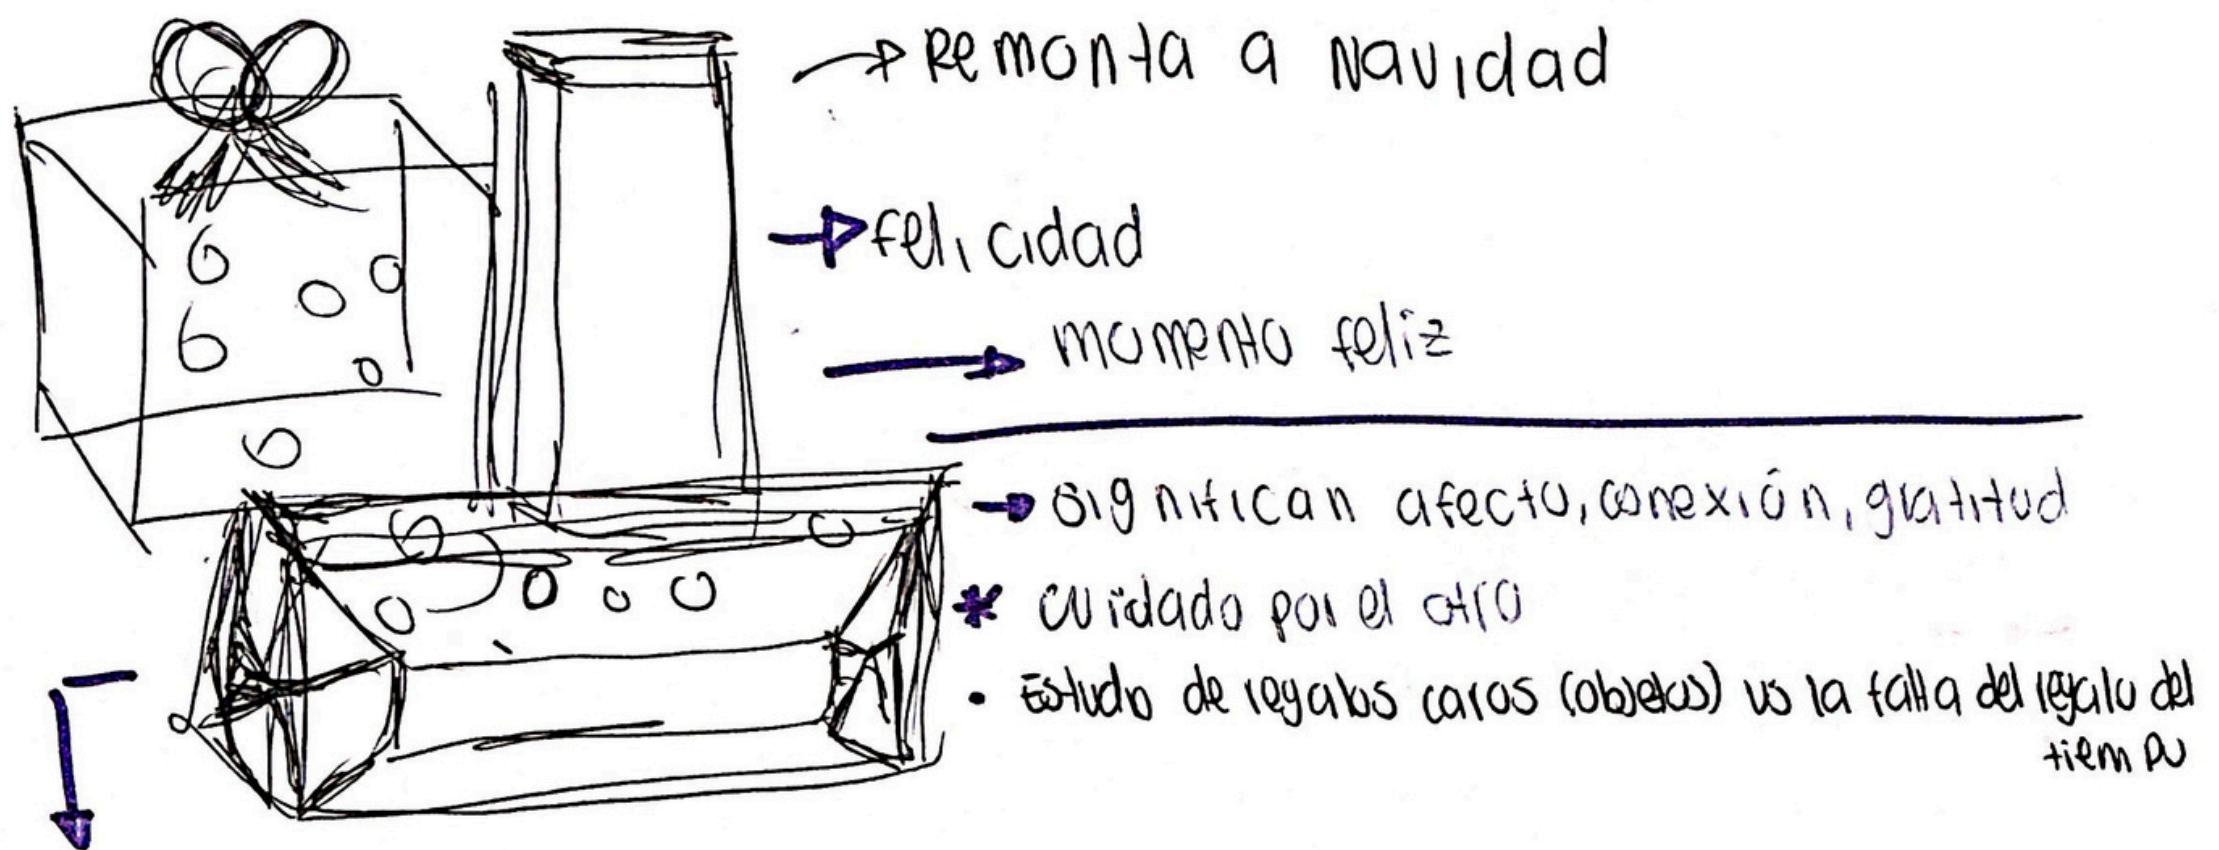 Remonta a Navidad
felicidad
momento feliz
significan afecto, conexión, gratitud
* cuidado por el otro
• Estudio de regalos caros (objetos) vs la falta del regalo del
tiempo